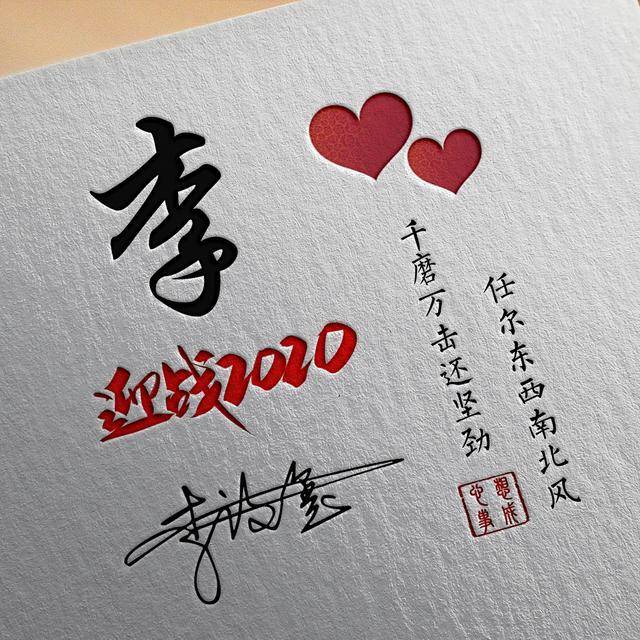 李
迎战2020
千磨万击还坚劲
任尔东西南北风
心想事成